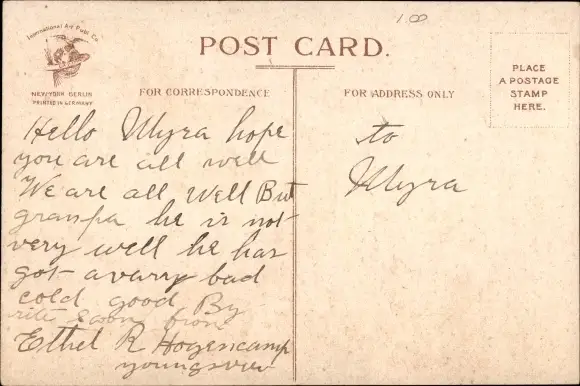 100
International Art Publ. Co.
NEW YORK BERLIN
PRINTED IN GERMANY
POST CARD.
PLACE
A POSTAGE
STAMP
HERE.
FOR CORRESPONDENCE
FOR ADDRESS ONLY
Hello Myra hope
you are all well
We are all Well But
granpa he is not
very well he has
got a varry bad
cold good By
rite soon from
Ethel R Hogencamp
youngsvie
to
Myra